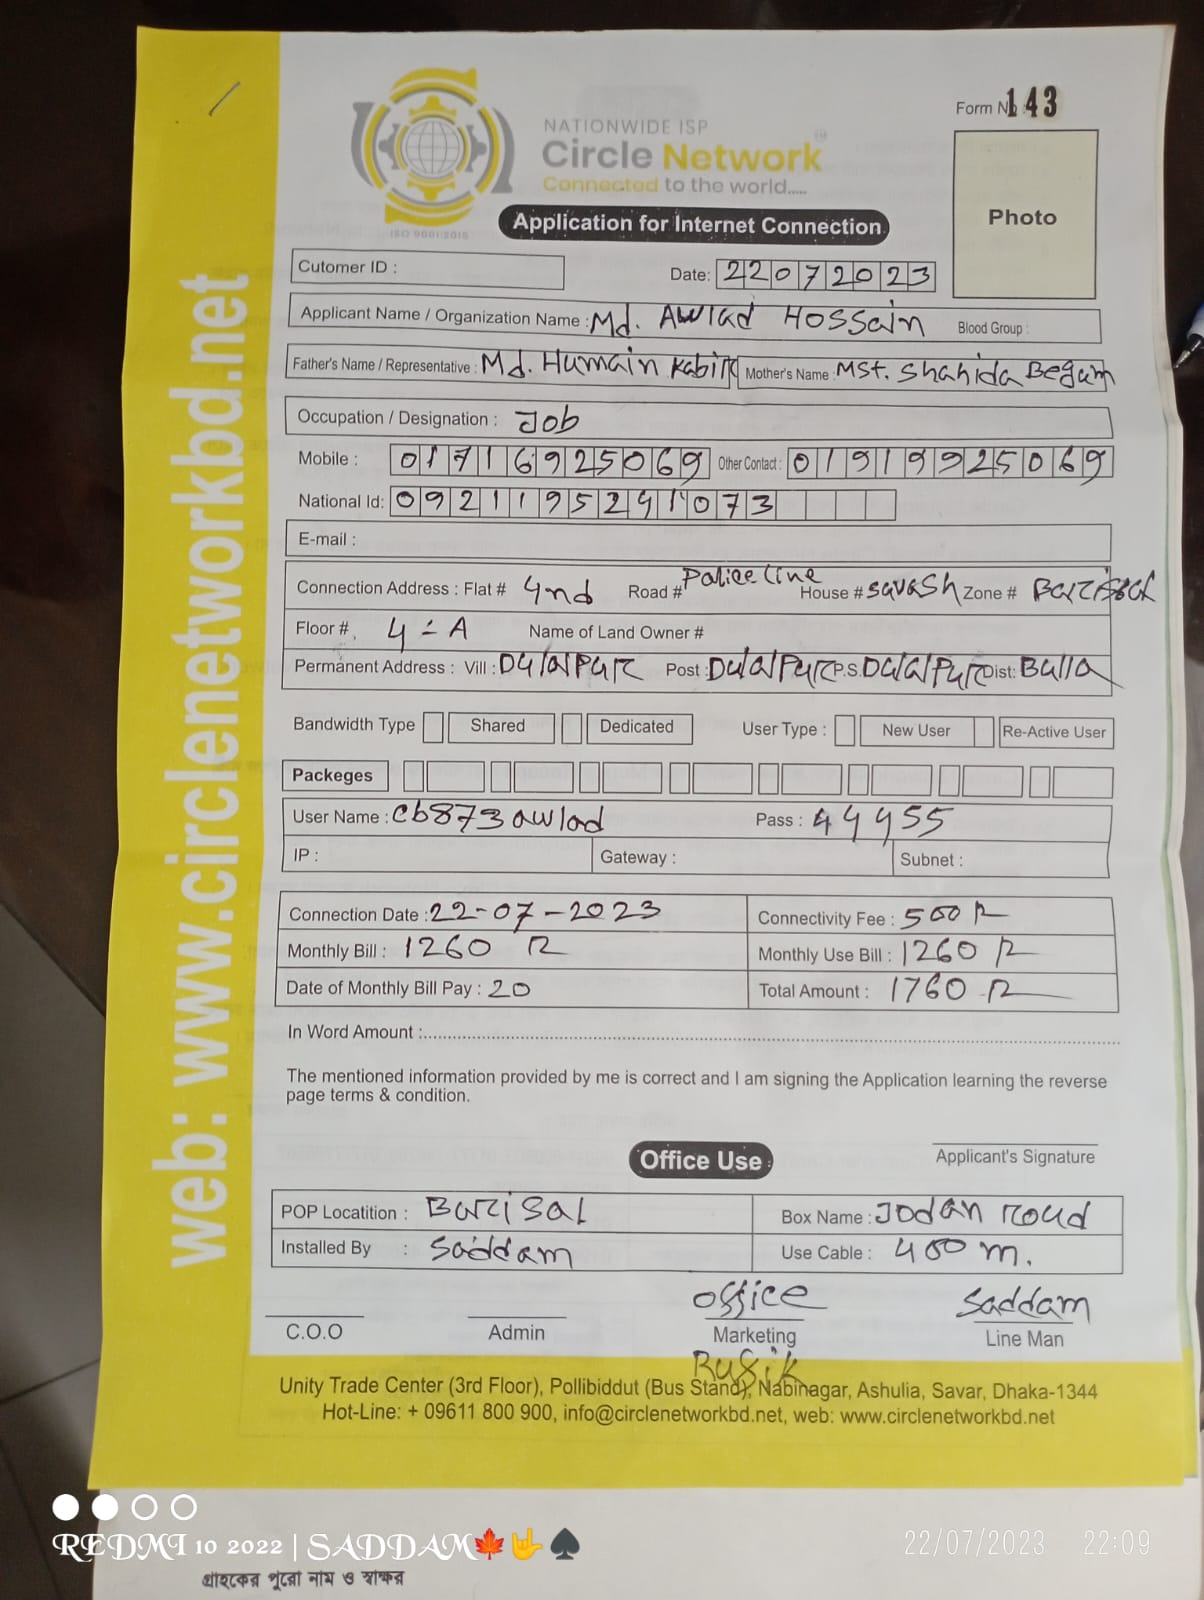 Form No 143
NATIONWIDE ISP
Circle Network TM
Connected to the world.....
ISO 9001:2015
Application for Internet Connection
Photo
Cutomer ID :
Date: 22072023
Applicant Name / Organization Name : Md. Awlad Hossain Blood Group :
Father's Name / Representative : Md. Humain Kabir Mother's Name : MST. Shahida Begam
Occupation / Designation : Job
Mobile : 01716925069 Other Contact : 01919925069
National Id: 0921195241073
E-mail :
Connection Address : Flat # 4nd Road # Police line House # savash Zone # Barisal
Floor # 4 - A Name of Land Owner #
Permanent Address : Vill : Dulalpur Post : Dulalpur P.S. Dulalpur Dist: Bulla
Bandwidth Type Shared Dedicated User Type : New User Re-Active User
Packeges
User Name : cb873awlad Pass : 44455
IP : Gateway : Subnet :
Connection Date : 22-07-2023 Connectivity Fee : 500
Monthly Bill : 1260 Monthly Use Bill : 1260
Date of Monthly Bill Pay : 20 Total Amount : 1760
In Word Amount :
The mentioned information provided by me is correct and I am signing the Application learning the reverse
page terms & condition.
Office Use
Applicant's Signature
POP Locatition : Barisal Box Name : Jodan road
Installed By : Saddam Use Cable : 400 m.
office Saddam
C.O.O Admin Marketing Line Man
Unity Trade Center (3rd Floor), Pollibiddut (Bus Stand), Nabinagar, Ashulia, Savar, Dhaka-1344
Hot-Line: + 09611 800 900, info@circlenetworkbd.net, web: www.circlenetworkbd.net
web: www.circlenetworkbd.net
REDMI 10 2022 | SADDAM🍁🤟♠ 22/07/2023 22:09
গ্রাহকের পুরো নাম ও স্বাক্ষর